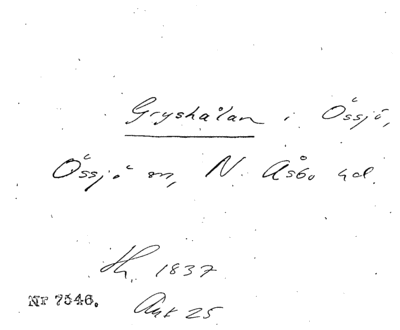 Gryshålan i Össjö,
Össjö sn, N. Åsbo hd.
Hh, 1837
Nr 7546. Ark 25